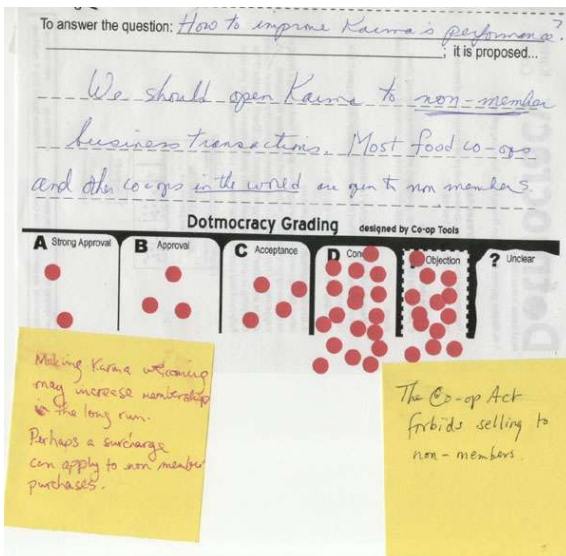 To answer the question: How to improve Karma's performance?
; it is proposed...
We should open Karma to non-member
business transactions. Most food co-ops
and other co-ops in the world are open to non members.
Dotmocracy Grading designed by Co-op Tools
A Strong Approval
B Approval
C Acceptance
D
Objection
? Unclear
Making Karma welcoming
may increase membership
in the long run.
Perhaps a surcharge
can apply to non member
purchases.
The Co-op Act
forbids selling to
non-members.